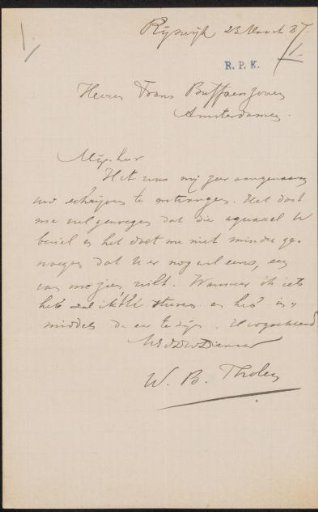 Rijswijk 23 Maart 87
R. P. K.
Heeren Frans Buffa en Zonen
Amsterdam.
Mijnheer
Het was mij zeer aangenaam
uw schrijven te ontvangen. Het doet
me veel genoegen dat de aquarel U
beviel en het doet me niet minder ge-
noegen dat U er nog wel eens een
van me zien wilt. Wanneer ik iets
heb zal ik 't U sturen en heb in-
middels de eer te zijn. Hoogachtend
UEd Dw Dienaar
W. B. Tholen